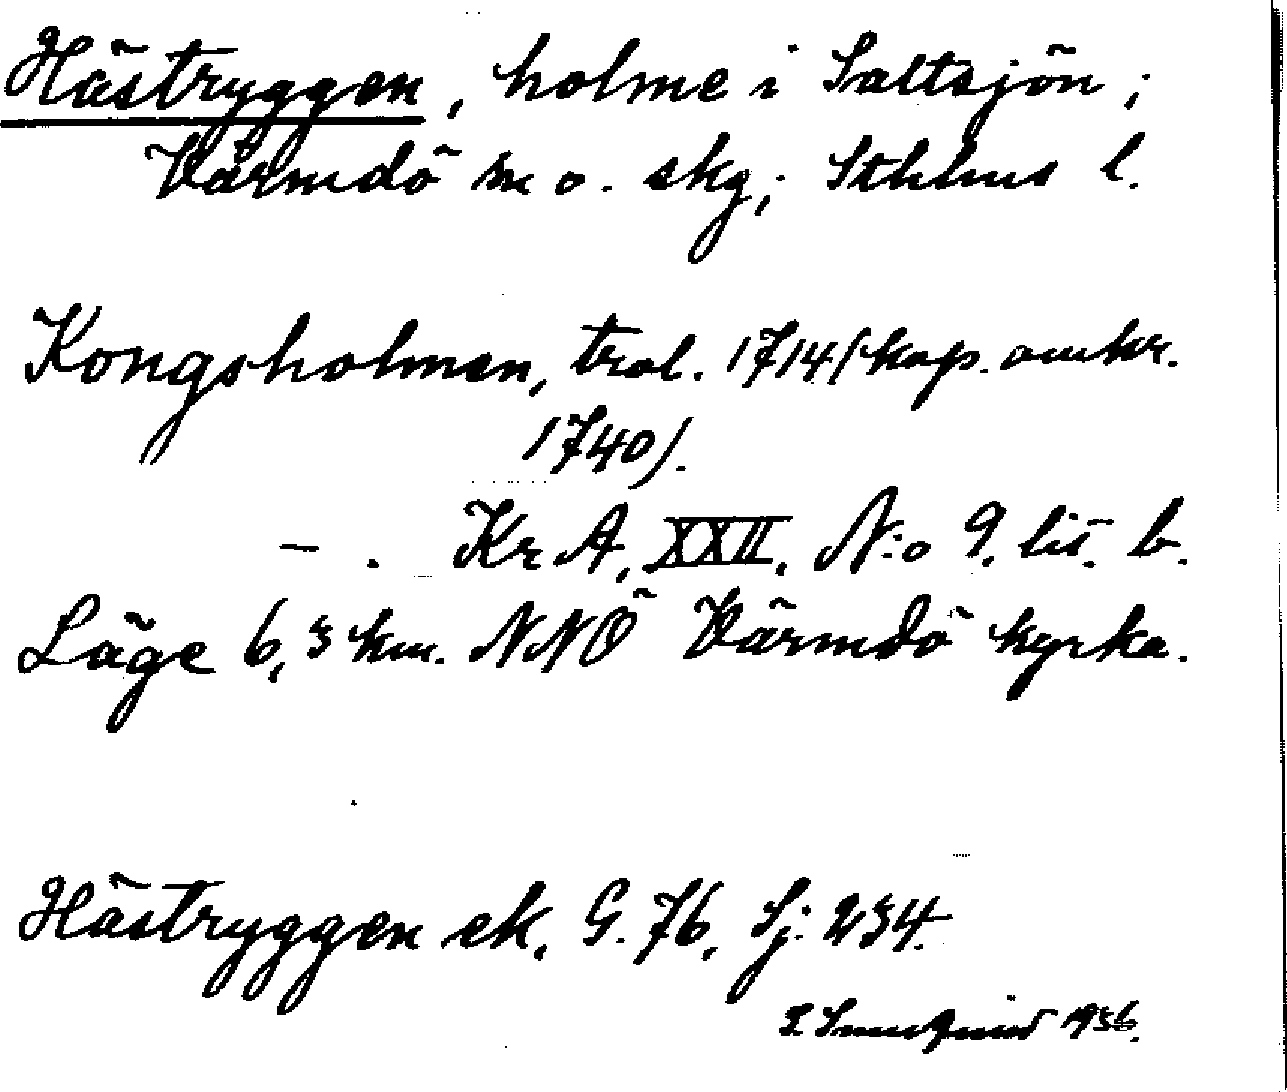 Hästryggen, holme i Saltsjön;
Värmdö sn o. skg; Sthlms l.
Kongsholmen, trol. 1714 (kop. omkr.
1740).
— . KrA, XXII, N:o 9. lit. b.
Läge 6,3 km. NNÖ Värmdö kyrka.
Hästryggen ek. G. 76, Sj: 234.
1936.